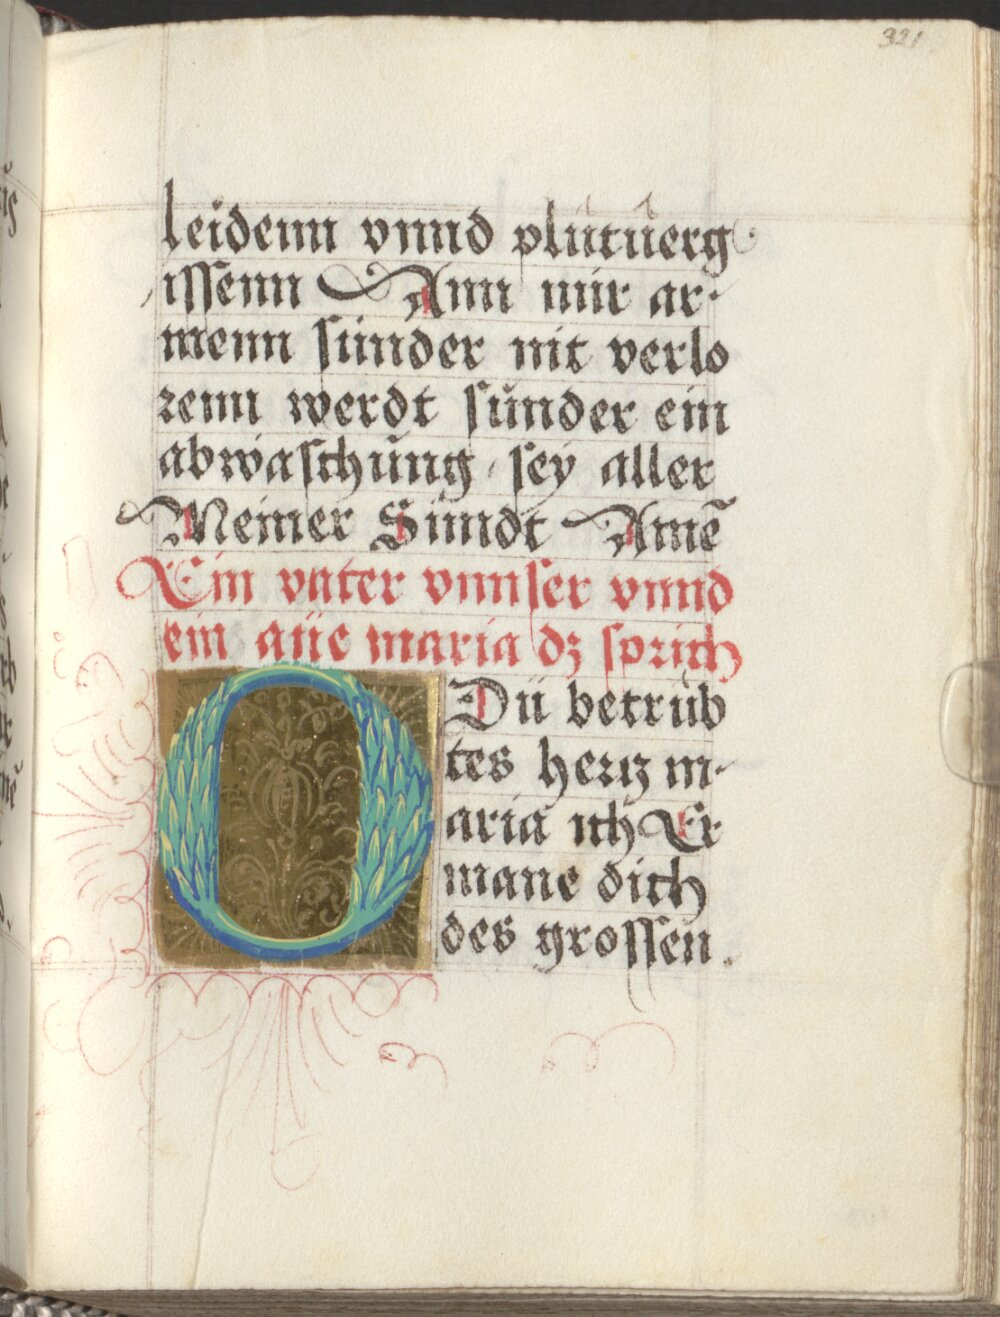 321.
leidenn vnnd plütüerg
issenn Ann mir ar-
menn sünder nit verlo
renn werdt sünder ein
abwaschüng sey aller
Meiner Sündt Amē
Ein vater vnnser vnnd
ein aüe maria dz sprich
O Dü betrüb
tes hertz m-
aria ich Er
mane dich
des grossen.